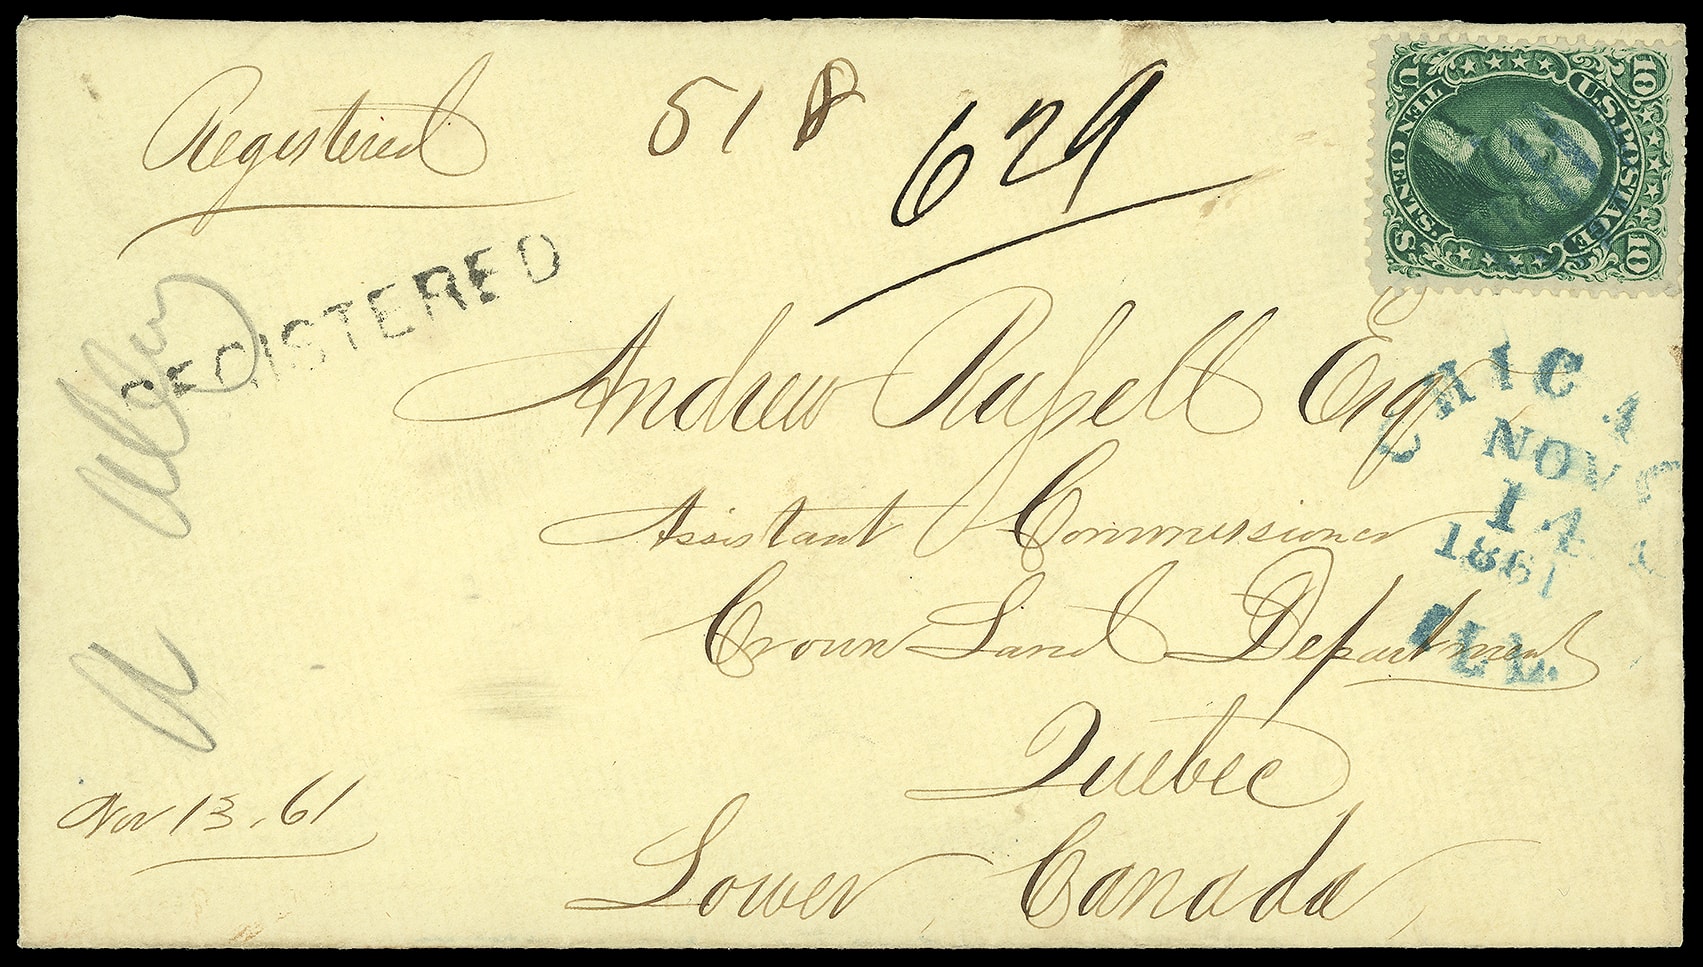 Registered 518 629
U TEN CENTS. S
U.S. POSTAGE
10 10
REGISTERED
Andrew Russell Esq
Assistant Commissioner
Crown Land Department
Quebec
Lower Canada
CHICAGO
NOV
14
1861
ILL.
Nov 13. 61